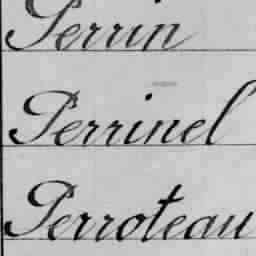 Perrin
Perrinel
Perroteau